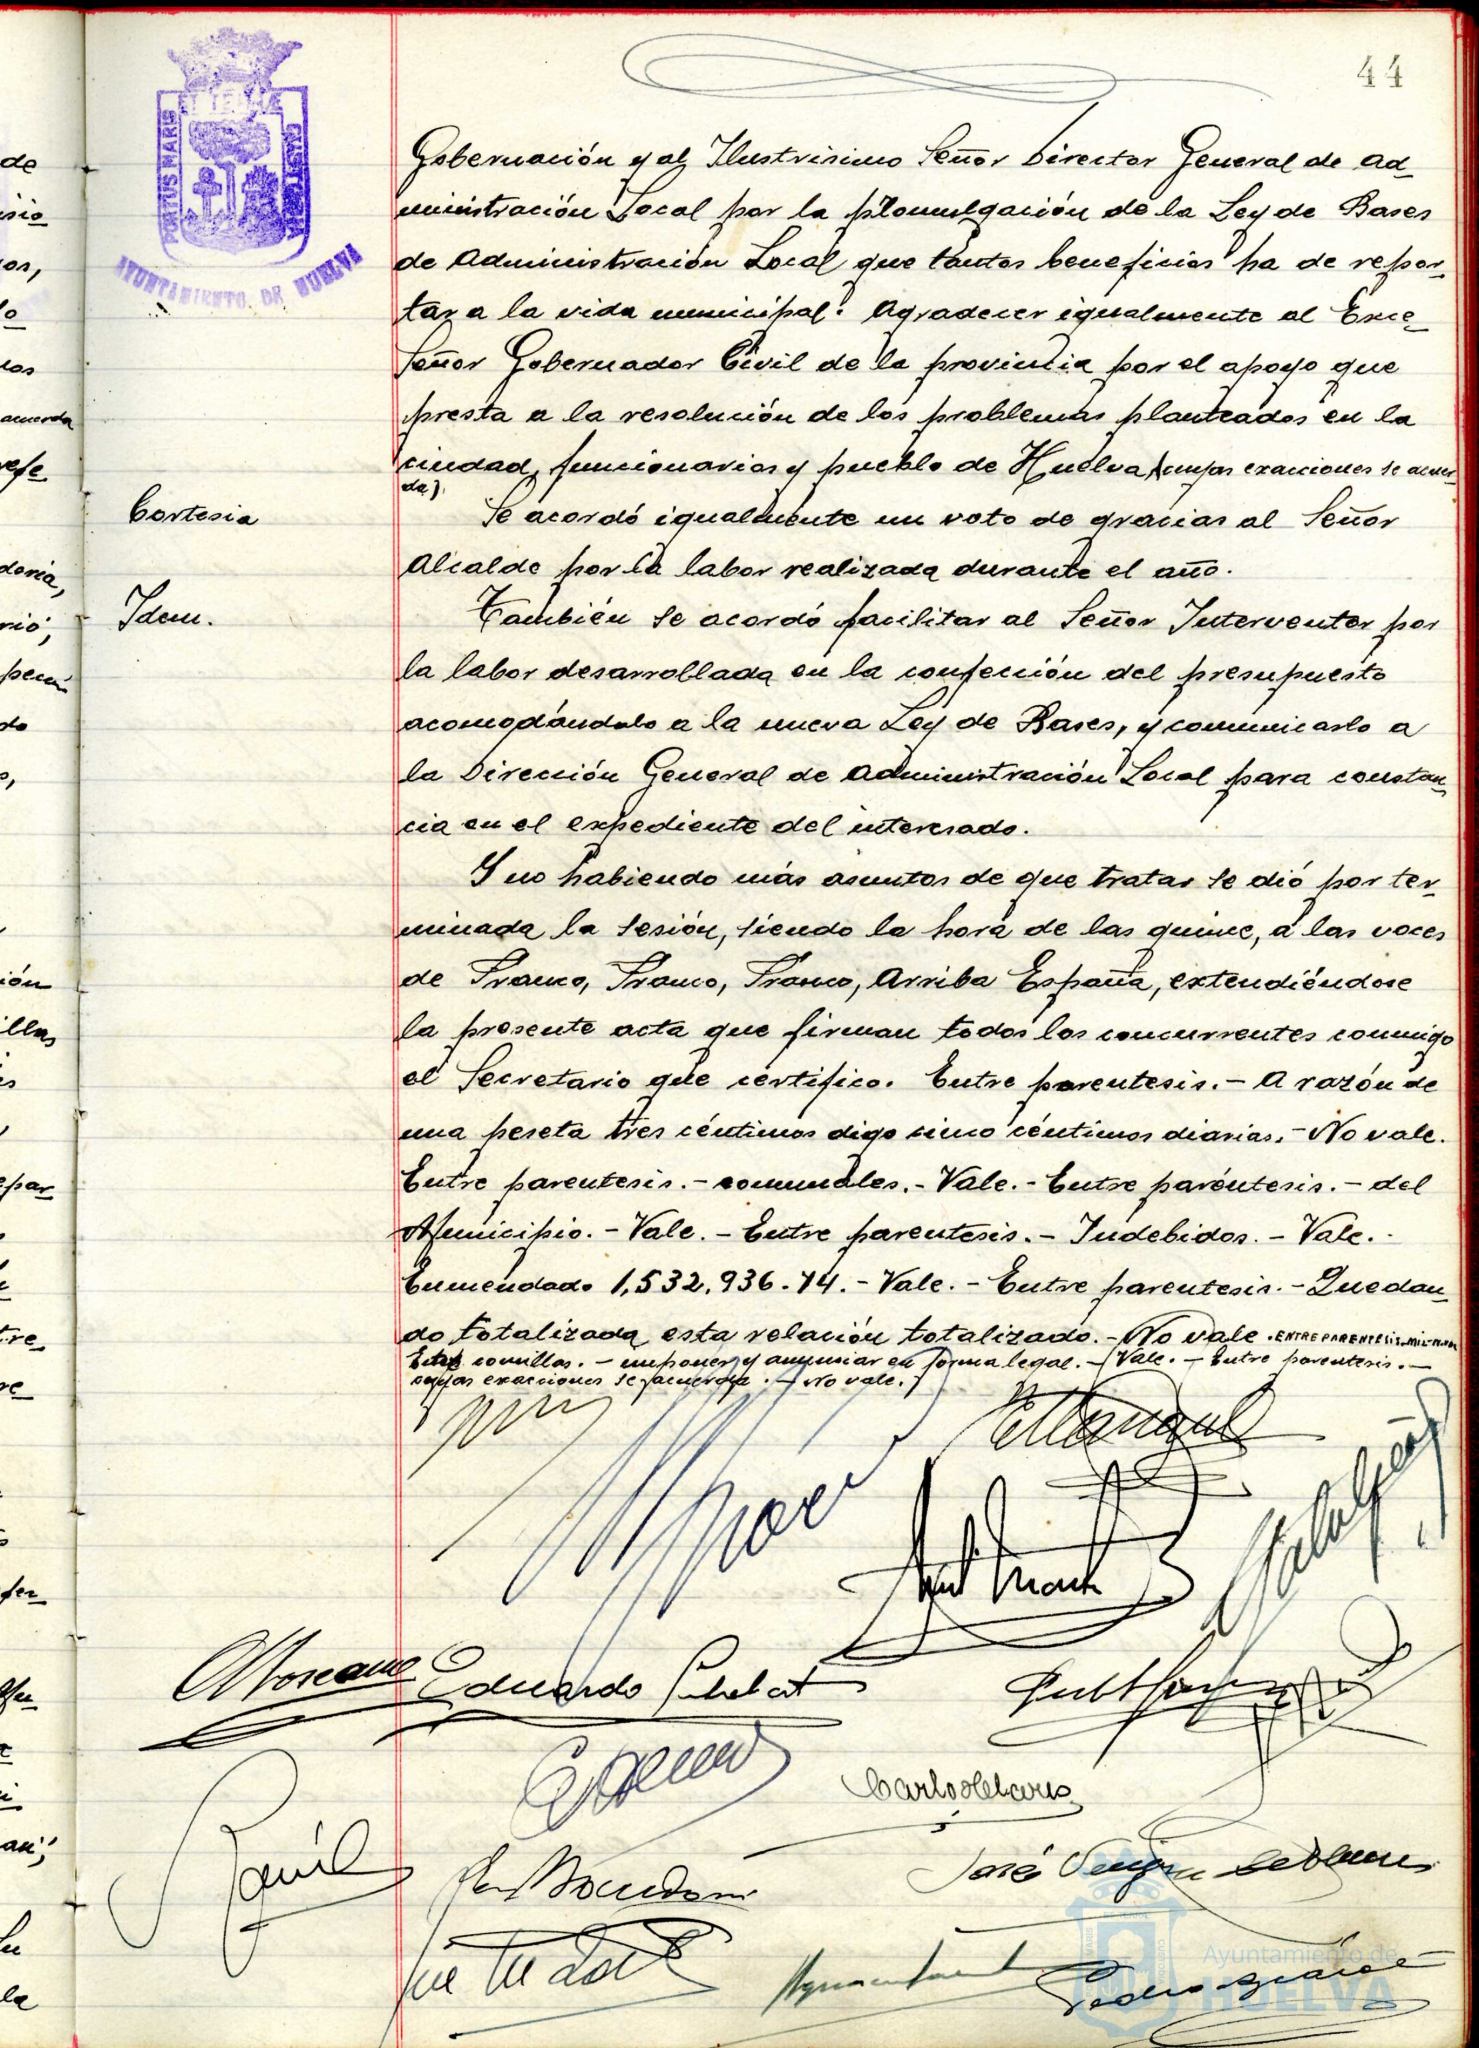 44
PORTUS MARIS
ET TERRÆ
CUSTODIA
AYUNTAMIENTO DE HUELVA
Gobernación y al Ilustrisimo Señor Director General de Ad-
ministración Local por la promulgación de la Ley de Bases
de Administración Local que tantos beneficios ha de repor-
tar a la vida municipal. Agradecer igualmente al Exce-
Señor Gobernador Civil de la provincia por el apoyo que
presta a la resolución de los problemas planteados en la
ciudad, funcionarios y pueblo de Huelva (cuyas exacciones se acuer-
da).
Cortesia
Se acordó igualmente un voto de gracias al Señor
Alcalde por la labor realizada durante el año.
Idem.
También se acordó facilitar al Señor Interventor por
la labor desarrollada en la confección del presupuesto
acomodándolo a la nueva Ley de Bases, y comunicarlo a
la Dirección General de Administración Local para constan-
cia en el expediente del interesado.
Y no habiendo más asuntos de que tratar se dió por ter-
minada la sesión, siendo la hora de las quince, a las voces
de Franco, Franco, Franco, Arriba España, extendiéndose
la presente acta que firman todos los concurrentes conmigo
el Secretario que certifico. Entre parentesis.- A razón de
una peseta tres céntimos digo cinco céntimos diarias.- No vale.
Entre parentesis.- comunales.- Vale.- Entre paréntesis.- del
Municipio.- Vale.- Entre parentesis.- Indebidos.- Vale.-
Enmendado 1,532,936.14.- Vale.- Entre parentesis.- Quedan-
do totalizada esta relación totalizado.- No vale. ENTRE PARENTESIS
Entre comillas.- imponer y anunciar en forma legal.- Vale.- Entre parentesis.-
cuyas exacciones se acuerda.- No vale.
Eduardo
José
Pedro
Ayuntamiento de
HUELVA